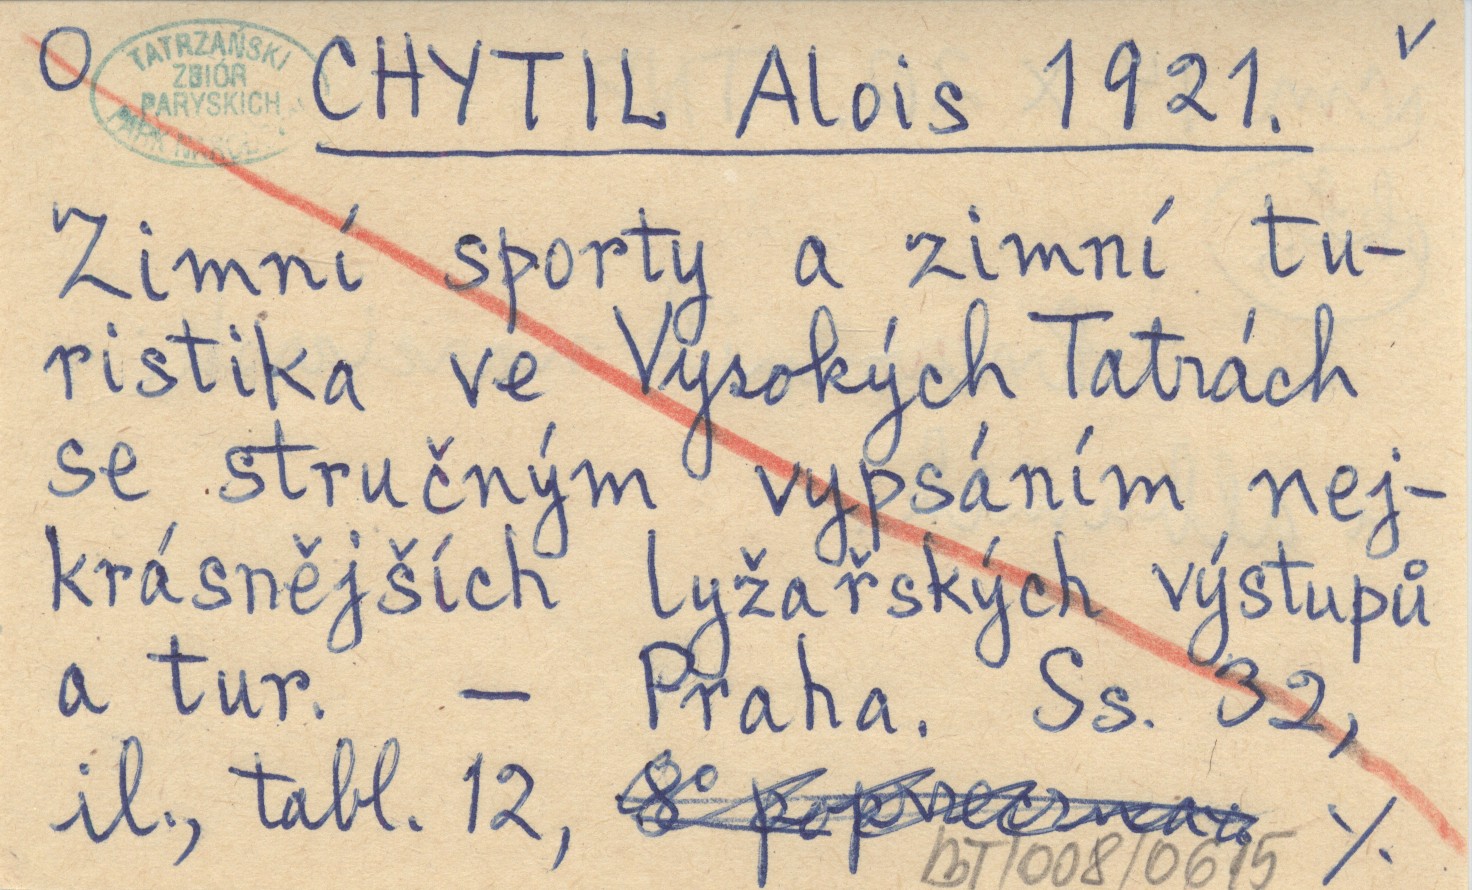 O TATRZAŃSKI CHYTIL Alois 1921. v
ZBIÓR
PARYSKICH
PARK
Zimní sporty a zimní tu-
ristika ve Vysokých Tatrách
se stručným vypsáním nej-
krásnějších lyžařských výstupů
a tur. — Praha. Ss. 32,
il., tabl. 12, 8° ./.
DT/008/0615